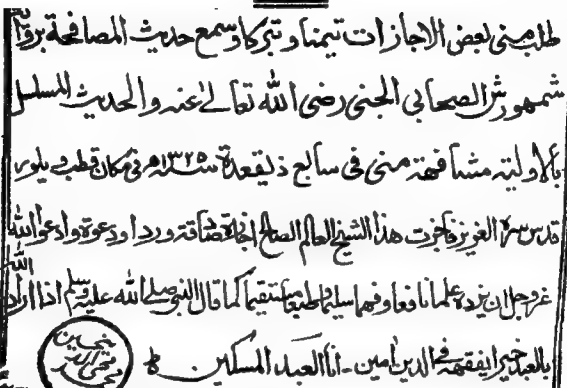 طلب منى بعض الاجازات تيمنا و تبركا وسمع حديث المصافحة
شمهورش الصحابي الجنى رضى الله تعالےٰ عنه و الحديث المسلسل
بالاولية مشافهة منى فى سابع ذيقعدة ١٣٢٥ھ فى مكان قطب ويلور
قدس سره العزيز فاجزت هذا الشيخ العالم الصالح ودعوة وادعو الله
عز وجل ان يزده علما نافعا وفهما سليما كما قال النبى صلے الله عليه وسلم اذا اراد الله
بالعبد خيرا يفقهه فے الدين امين - انا العبد المسكين